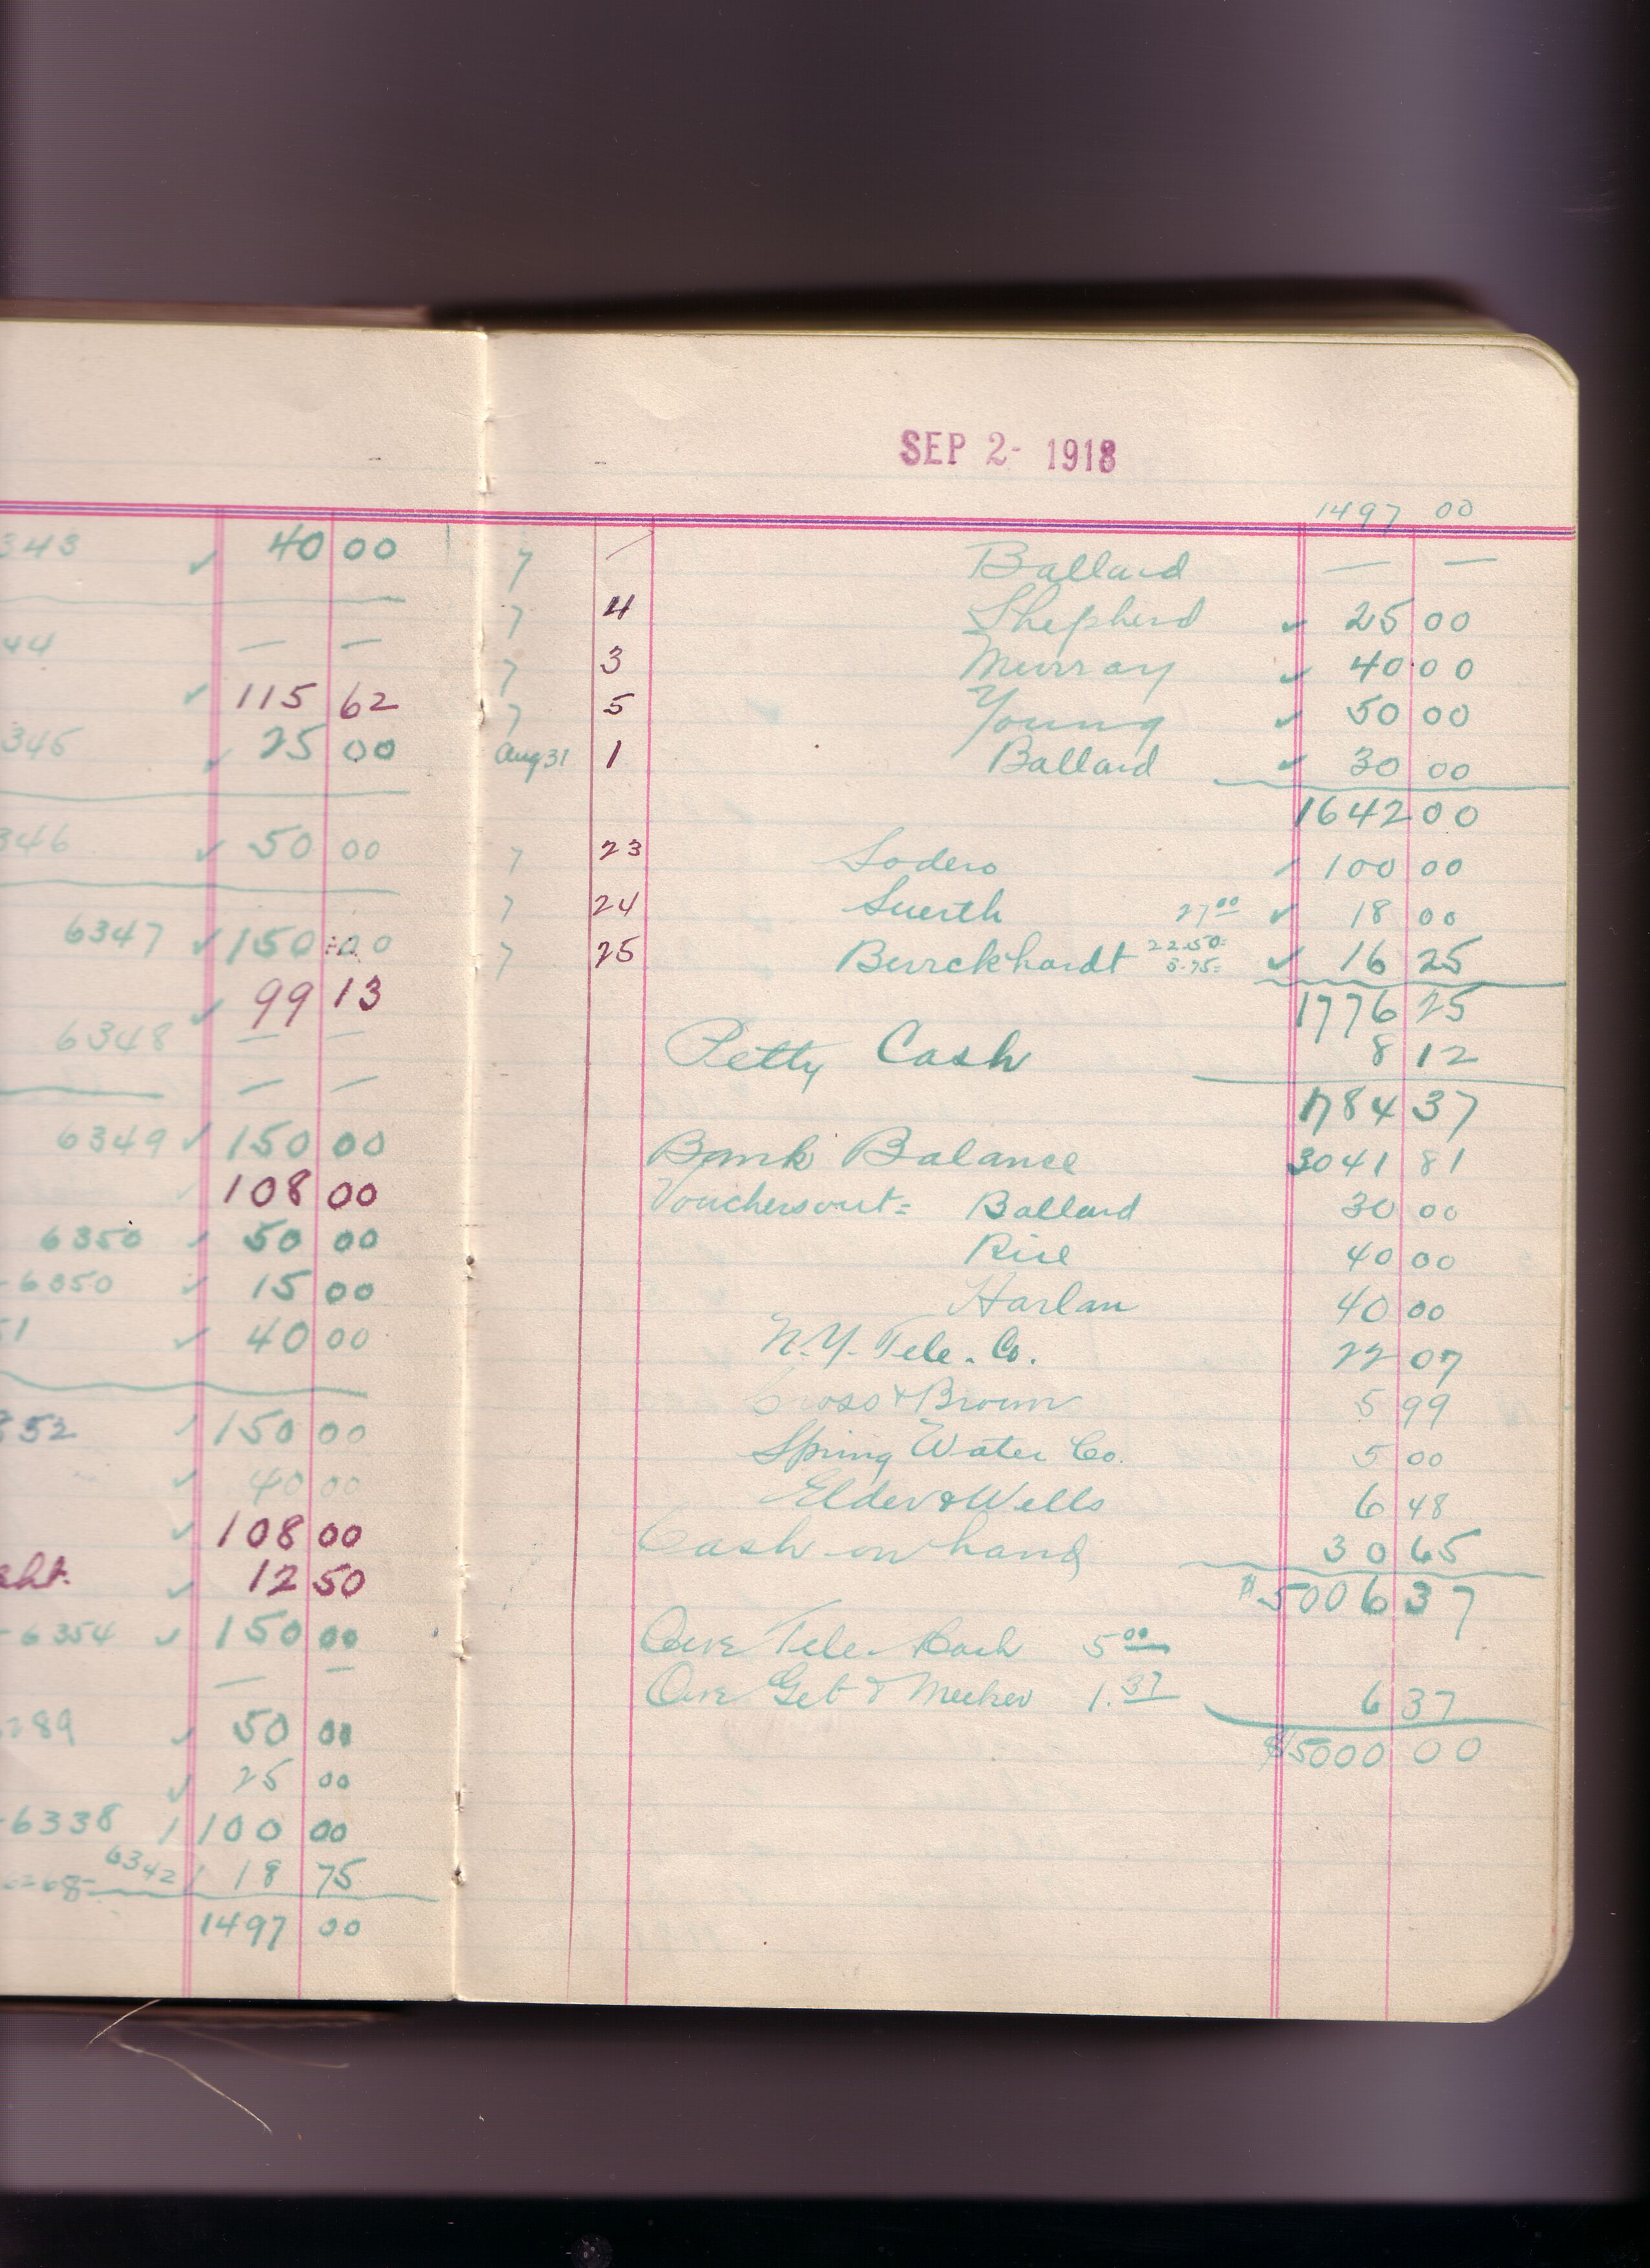 343 ✓ 40 00
44 — —
✓ 115 62
345 ✓ 25 00
346 ✓ 50 00
6347 ✓ 150 00
✓ 99 13
6348 — —
— —
6349 ✓ 150 00
108 00
6350 ✓ 50 00
-6350 ✓ 15 00
51 ✓ 40 00
352 ✓ 150 00
✓ 40 00
✓ 108 00
✓ 12 50
-6354 ✓ 150 00
— —
289 ✓ 50 00
✓ 25 00
-6338 / 100 00
6342 / 18 75
1497 00
SEP 2- 1918
1497 00
7 Ballard — —
7 4 Shepherd ✓ 25 00
7 3 Murray ✓ 40 00
7 5 Young ✓ 50 00
Aug 31 1 Ballard ✓ 30 00
1642 00
7 23 Sodero ✓ 100 00
7 24 Suerth 27 00 ✓ 18 00
7 25 Burckhardt 22.50= ✓ 16 25
1776 25
Petty Cash 8 12
1784 37
Bank Balance 3041 81
Vouchers out = Ballard 30 00
Rice 40 00
Harlan 40 00
N.Y. Tele. Co. 22 07
Cross & Brown 5 99
Spring Water Co. 5 00
Elder & Wells 6 48
Cash on hand 30 65
$5006 37
Owe Tele. 5 00
Owe 1.37 6 37
$5000 00